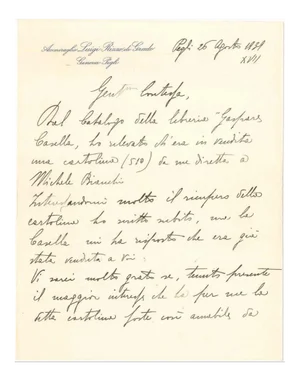 Ammiraglio Luigi Rizzo di Grado
Genova Pegli
Pegli 26 Agosto 1939
XVII
Gent.ma Contessa,
Dal Catalogo della libreria Gaspare
Casella, ho rilevato ch'era in vendita
una cartolina (510) da me diretta a
Michele Bianchi
Interessandomi molto il ricupero della
cartolina ho scritto subito, ma la
Casella mi ha risposto che era già
stata venduta a voi.
Vi sarei molto grato se, tenuto presente
il maggior interesse che ha per me la
detta cartolina foste così amabile da